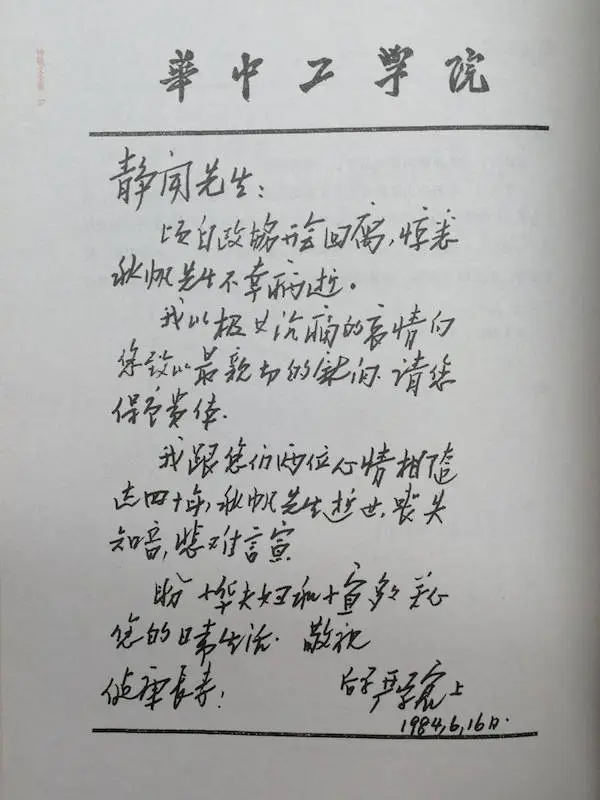 華中工学院
静闻先生：
顷自政协开会回寓，惊悉
秋帆先生不幸病逝。
我以极其沉痛的哀情向
您致以最亲切的慰问．请您
保重贵体．
我跟您们两位心情相随
达四十年，秋帆先生逝世，丧失
知音，悲难言宣
盼 少华夫妇和少宣多多关心
您的日常生活． 敬祝
健康长寿！
严学宭上
1984,6,16日.